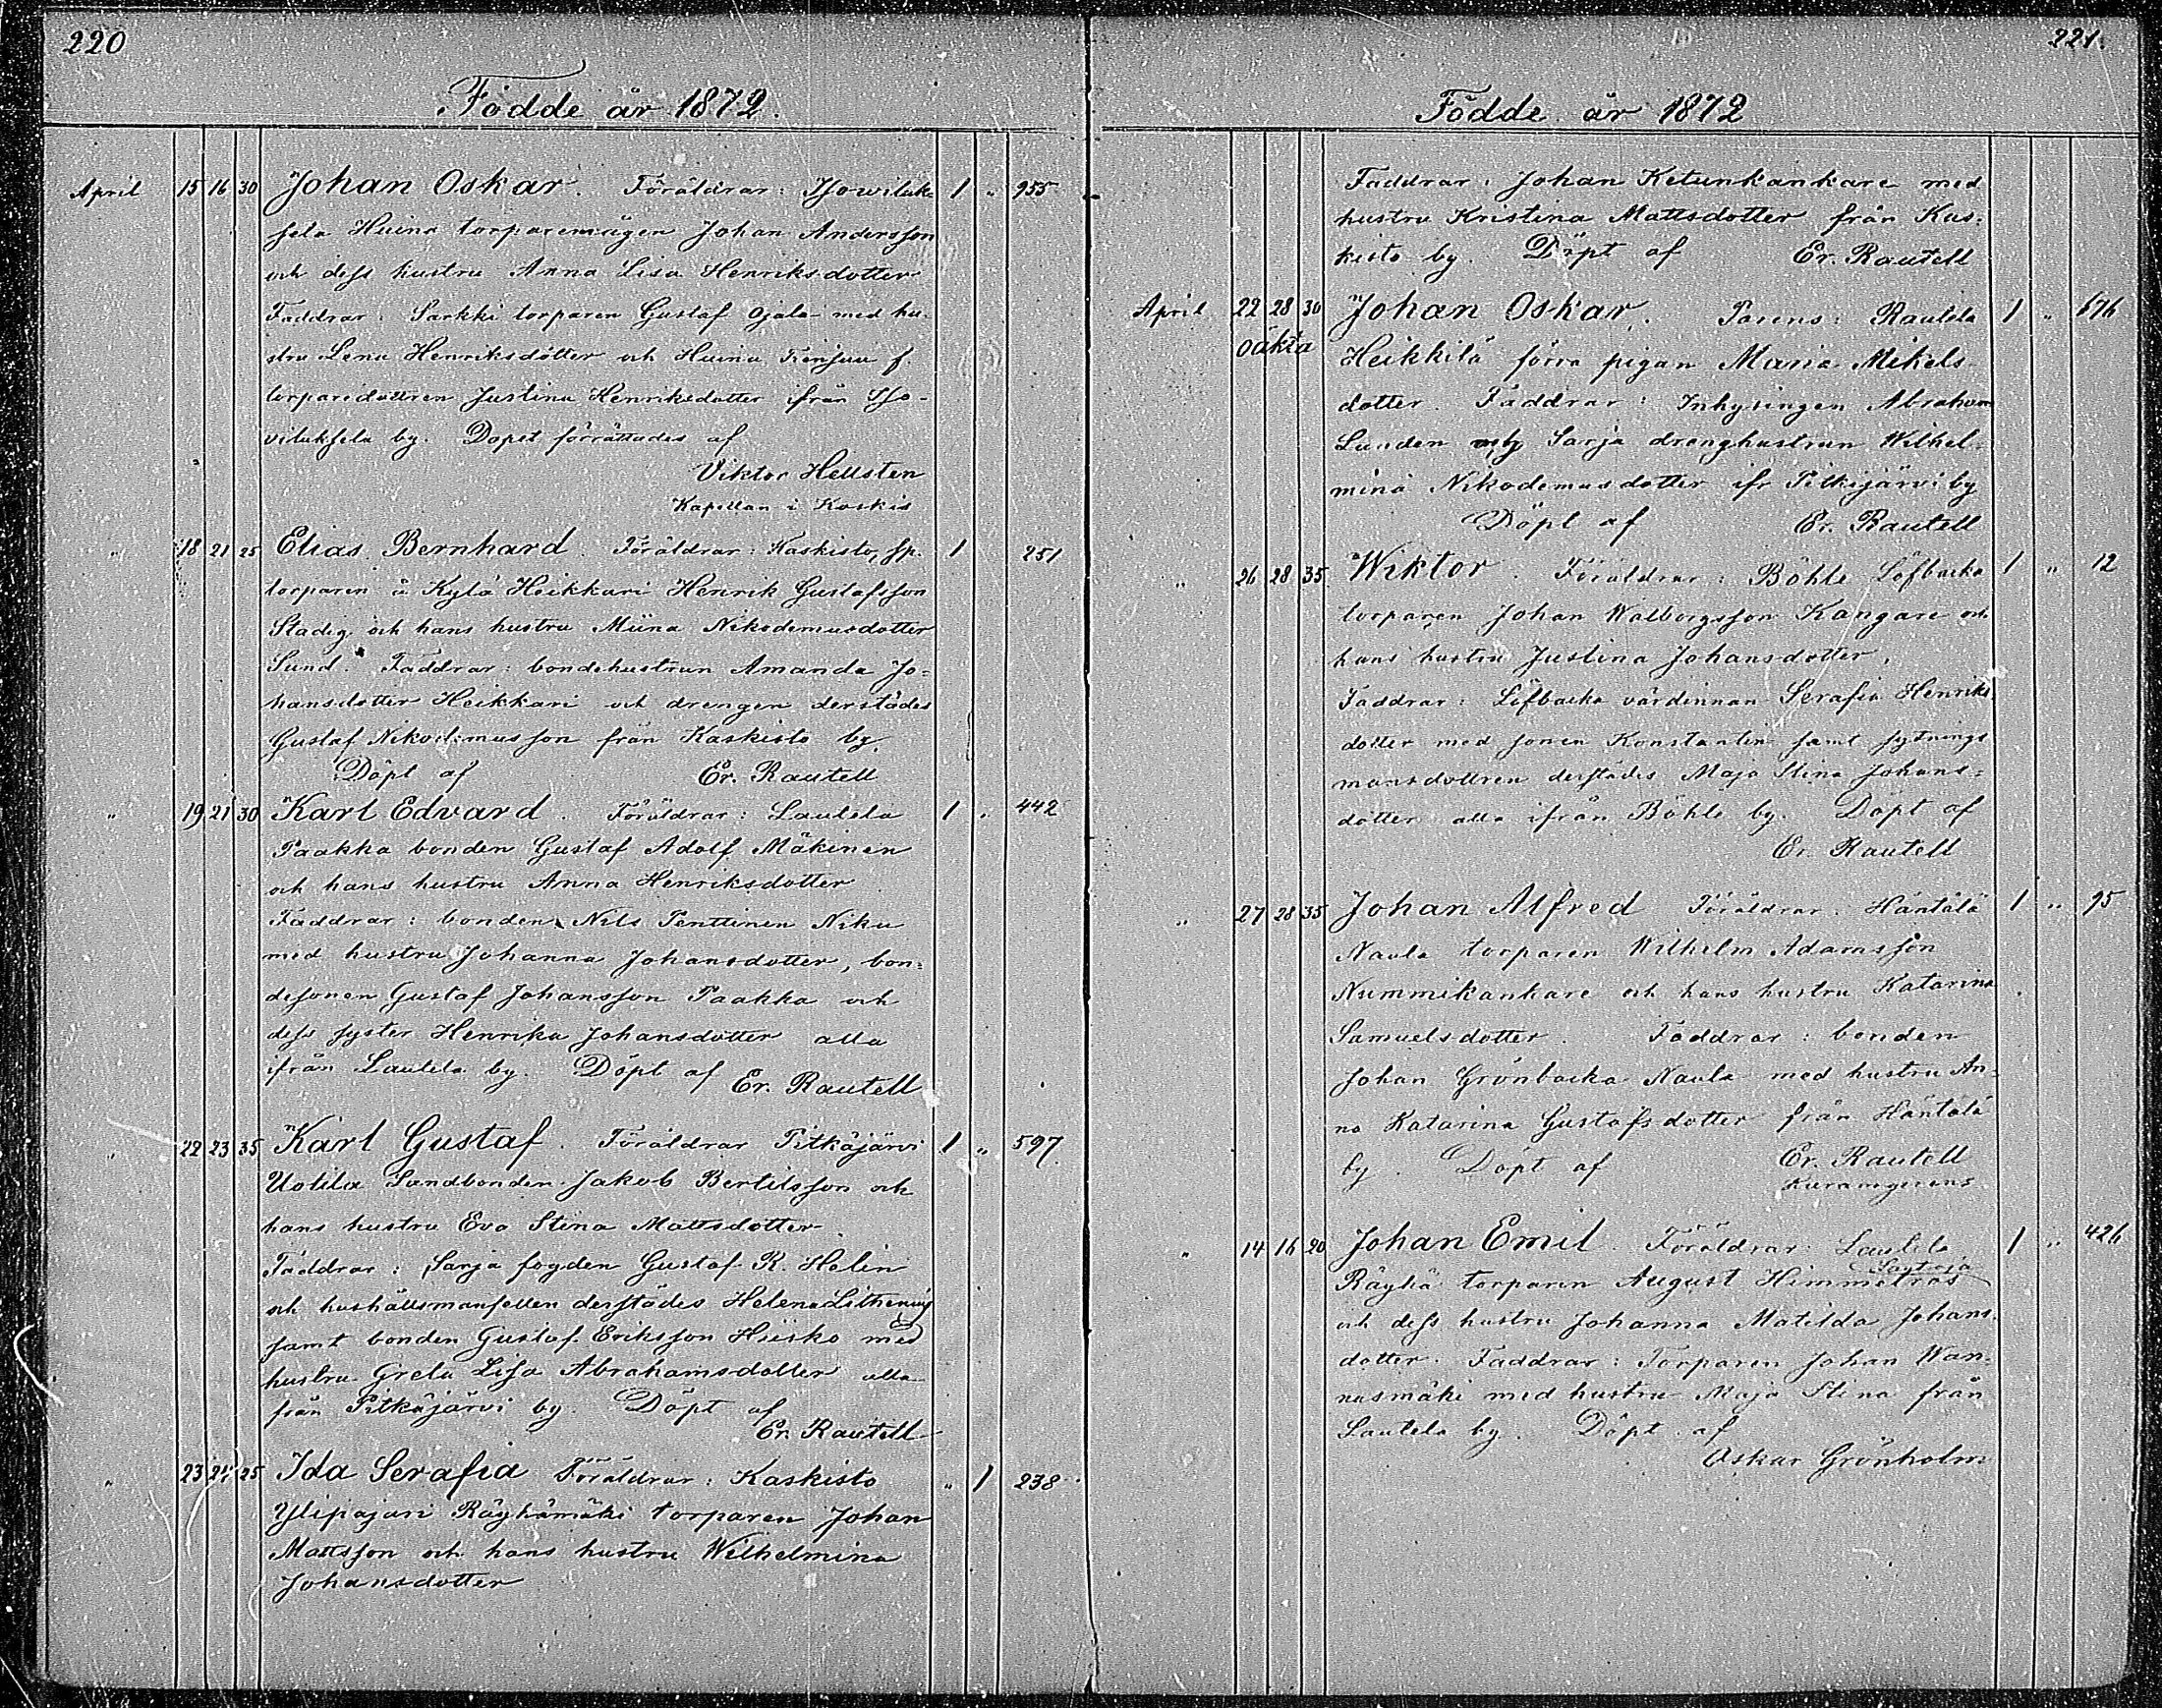 220
Födde år 1872.
April 15 16 30 Johan Oskar. Föräldrar: Isoviluk- 1 " 955
sela Huina torparemågen Johan Andersson
och dess hustru Anna Lisa Henriksdotter
Faddrar: Sarkki torparen Gustaf Ojala med hu-
stru Lena Henriksdotter och Huina f.
torparedottren Justina Henriksdotter ifrån Iso-
viluksela by. Dopet förrättades af
Viktor Hellsten
Kapellan i Koskis
" 18 21 25 Elias Bernhard. Föräldrar: Kaskisto, sp. 1 251
torparen å Kylä Heikkari Henrik Gustafsson
Stadig och hans hustru Miina Nikodemusdotter
Sund. Faddrar: bondehustrun Amanda Jo-
hansdotter Heikkari och drengen derstädes
Gustaf Nikodemusson från Kaskisto by.
Döpt af Er. Rautell
" 19 21 30 Karl Edvard. Föräldrar: Lautela 1 " 442
Paakka bonden Gustaf Adolf Mäkinen
och hans hustru Anna Henriksdotter
Faddrar: bonden Nils Penttinen Niku
med hustru Johanna Johansdotter, bon-
desonen Gustaf Johansson Paakka och
dess syster Henrika Johansdotter alla
ifrån Lautela by. Döpt af Er. Rautell
" 22 23 35 Karl Gustaf. Föräldrar Pitkäjärvi 1 " 597
Uotila Landbonden Jakob Bertilsson och
hans hustru Eva Stina Mattsdotter
Faddrar: Sarja fogden Gustaf R. Helin
och hushållsmansellen derstädes Helena
samt bonden Gustaf Eriksson Hiisko med
hustru Greta Lisa Abrahamsdotter alla
från Pitkäjärvi by. Döpt af
Er. Rautell
" 23 24 25 Ida Serafia Föräldrar: Kaskisto " 1 238
Ylipajari Räyhämäki torparen Johan
Mattsson och hans hustru Wilhelmina
Johansdotter
221.
Födde år 1872
Faddrar: Johan Ketunkankare med
hustru Kristina Mattsdotter från Kas-
kisto by. Döpt af Er. Rautell
April 22 28 30 Johan Oskar. Parens: Rautela 1 " 676
oäkta Heikkilä förra pigan Maria Mikels-
dotter. Faddrar: Inhysingen Abraham
Lunden och Sarja drenghustrun Wilhel-
mina Nikodemusdotter ifr Pitkäjärvi by
Döpt af Er. Rautell
" 26 28 35 Wiktor. Föräldrar: Böhle Löfbacka 1 " 12
torparen Johan Walborgsson Kangare och
hans hustru Justina Johansdotter.
Faddrar: Löfbacka värdinnan Serafia Henriks
dotter med sonen Konstantin samt sytnings
mansdottren derstädes Maja Stina Johans-
dotter alla ifrån Böhle by. Döpt af
Er. Rautell
" 27 28 35 Johan Alfred Föräldrar: Häntälä 1 " 95
Naula torparen Wilhelm Adamsson
Nummikankare och hans hustru Katarina
Samuelsdotter. Faddrar: bonden
Johan Grönbacka Naula med hustru An-
na Katarina Gustafsdotter från Häntälä
by. Döpt af Er. Rautell
kuramgerens
" 14 16 20 Johan Emil. Föräldrar: Lautela 1 " 426
Räyhä torparen August Himmetros
och dess hustru Johanna Matilda Johans-
dotter. Faddrar: Torparen Johan Wan-
nasmäki med hustru Maja Stina från
Lautela by. Döpt af
Oskar Grönholm